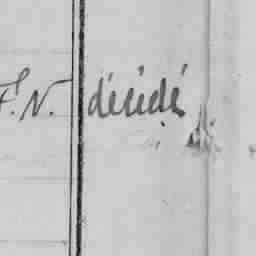 F. N. décédé